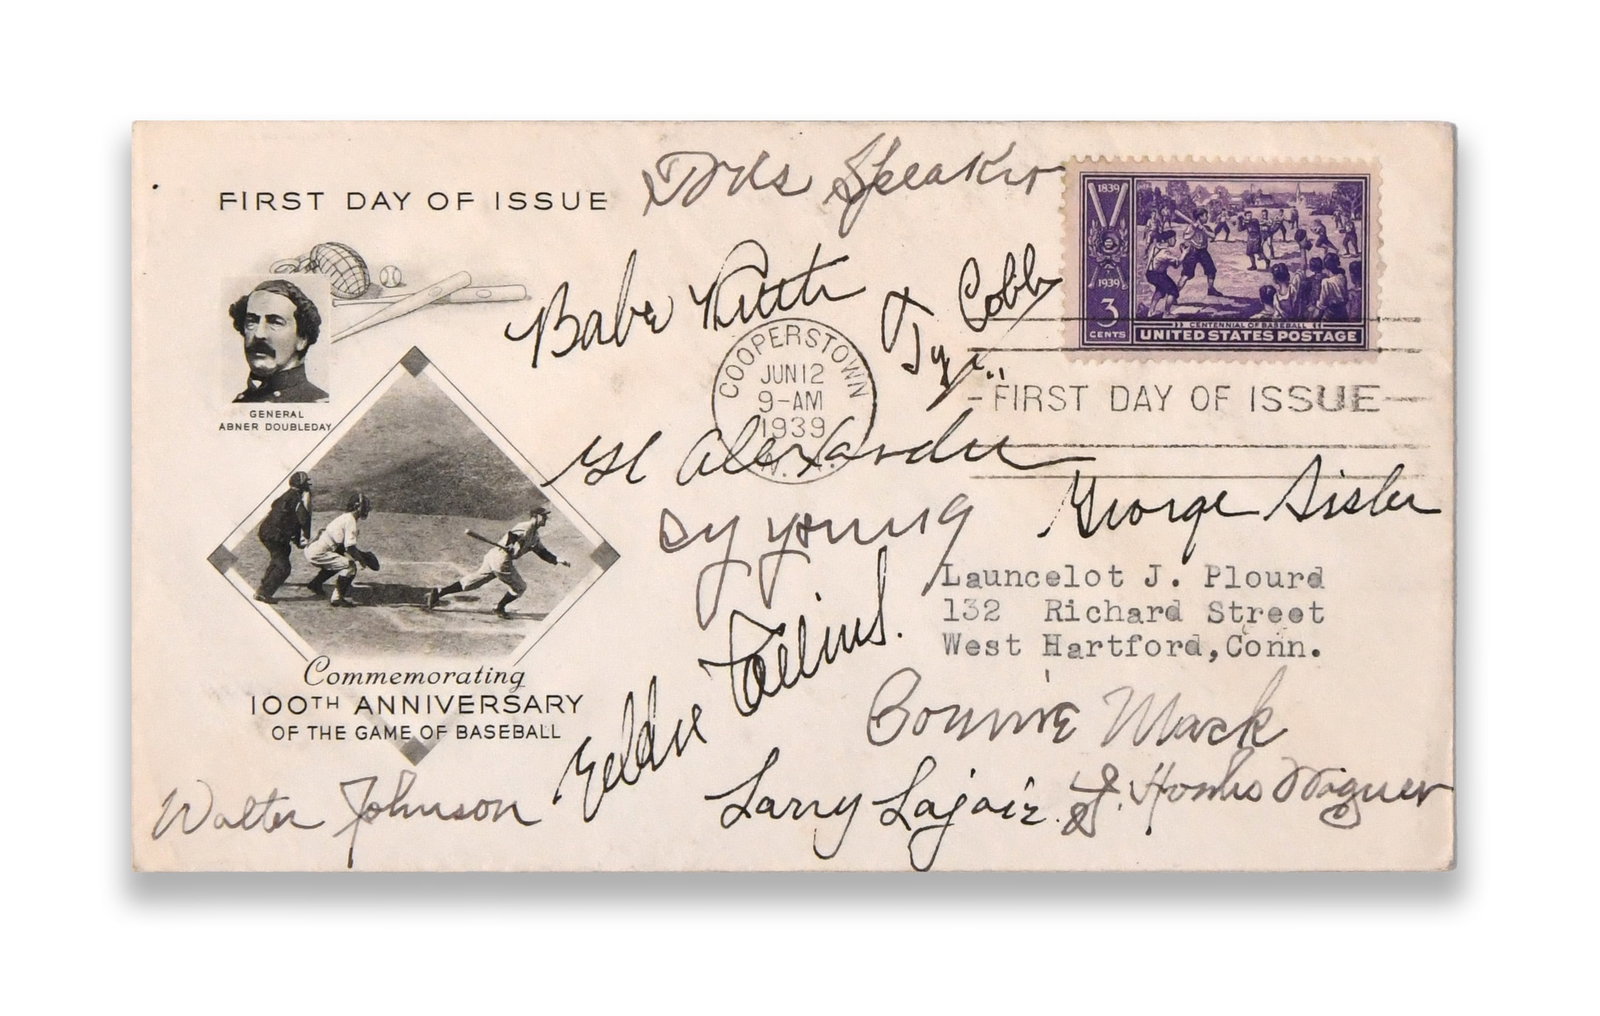 FIRST DAY OF ISSUE
Tris Speaker
1839
1939
3
CENTS
CENTENNIAL OF BASEBALL
UNITED STATES POSTAGE
Babe Ruth
Ty Cobb
GENERAL
ABNER DOUBLEDAY
COOPERSTOWN
JUN 12
9-AM
1939
N.Y.
FIRST DAY OF ISSUE
GC Alexander
George Sisler
Cy Young
Launcelot J. Plourd
132 Richard Street
West Hartford, Conn.
Eddie Collins.
Commemorating
100TH ANNIVERSARY
OF THE GAME OF BASEBALL
Connie Mack
Walter Johnson
Larry Lajoie.
J. Honus Wagner